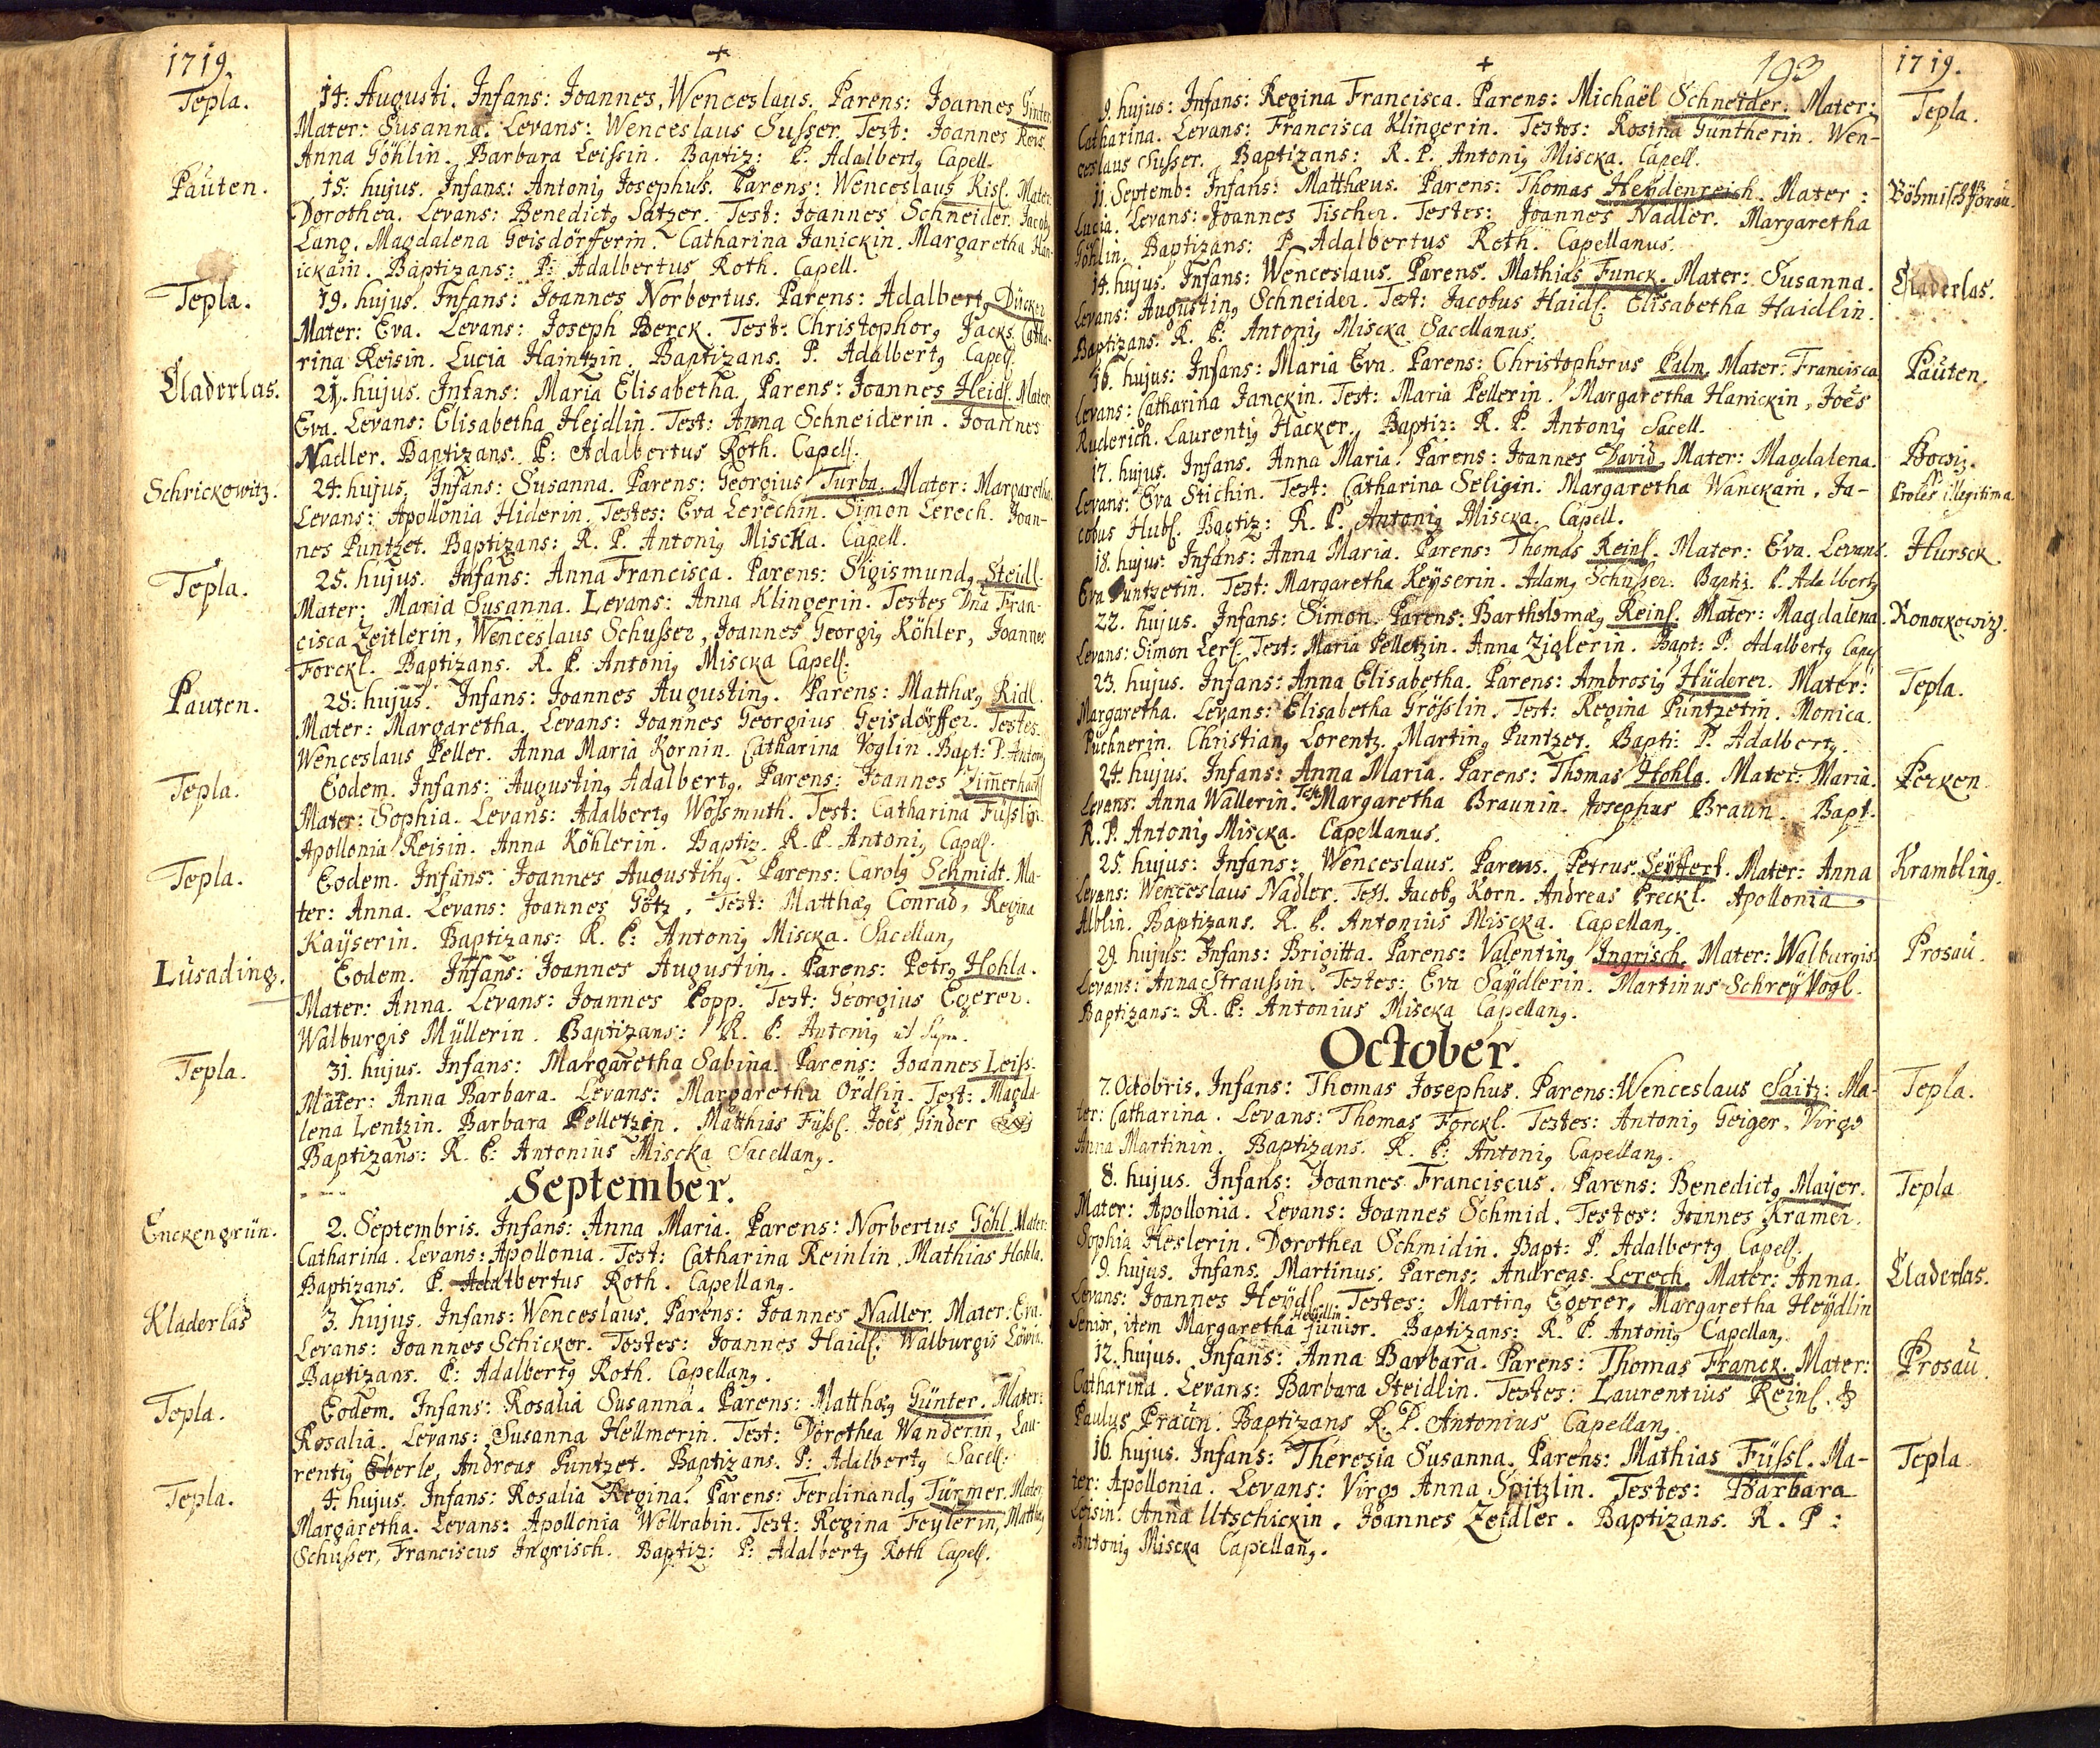 1719.
Tepla.
14: Augusti. Infans: Joannes, Wenceslaus. Parens: Joannes Ginter
Mater: Susanna. Levans: Wenceslaus Susser. Test: Joannes Reis.
Anna Göhlin. Barbara Leissin. Baptiz: P. Adalbertg Capell.
Pauten.
15: hujus. Infans: Antonig Josephus. Parens: Wenceslaus Kisl. Mater:
Dorothea. Levans: Benedictg Satzer. Test: Joannes Schneider. Jacobg
Lang. Magdalena Geisdörfferin. Catharina Janickin. Margaretha Han-
ickain. Baptizans: P: Adalbertus Roth. Capell.
Tepla.
19. hujus. Infans: Joannes Norbertus. Parens: Adalbertg Dücker
Mater: Eva. Levans: Joseph Berck. Test: Christophorg Jacks. Catha-
rina Reisin. Lucia Haintzin. Baptizans. P. Adalbertg Capell.
Claderlas.
21. hujus. Infans: Maria Elisabetha. Parens: Joannes Heidl. Mater
Eva. Levans: Elisabetha Heidlin. Test: Anna Schneiderin. Joannes
Nadler. Baptizans. P: Adalbertus Roth. Capell.
Schrickowitz.
24. hujus. Infans: Susanna. Parens: Georgius Turba. Mater: Margaretha.
Levans: Apollonia Hiderin. Testes: Eva Lerechin. Simon Lerech. Joan-
nes Puntzet. Baptizans: R. P. Antonig Miscka. Capell.
Tepla.
25. hujus. Infans: Anna Francisca. Parens: Sigismundg Steidl.
Mater: Maria Susanna. Levans: Anna Klingerin. Testes Dna Fran-
cisca Zeitlerin, Wenceslaus Schusser, Joannes Georgig Köhler, Joannes
Forckl. Baptizans. R. P. Antonig Miscka Capell.
Pauten.
28. hujus. Infans: Joannes Augusting. Parens: Matthæg Ridl.
Mater: Margaretha. Levans: Joannes Georgius Geisdörffer. Testes.
Wenceslaus Peller. Anna Maria Kornin. Catharina Voglin. Bapt: P. Antong
Tepla.
Eodem. Infans: Augusting Adalbertg. Parens: Joannes Zimerhackl
Mater: Sophia. Levans: Adalbertg Wossmuth. Test: Catharina Füsslin.
Apollonia Reisin. Anna Köhlerin. Baptiz. R. P. Antonig Capell.
Tepla.
Eodem. Infans: Joannes Augusting. Parens: Carolg Schmidt. Ma-
ter: Anna. Levans: Joannes Götz. Test: Matthæg Conrad, Regina
Kaÿserin. Baptizans: R. P: Antonig Miscka. Sacellang
Lusading.
Eodem. Infans: Joannes Augusting. Parens: Petrg Hohla.
Mater: Anna. Levans: Joannes Popp. Test: Georgius Egerer.
Walburgis Müllerin. Baptizans: R. P. Antonig ut supra.
Tepla.
31. hujus. Infans: Margaretha Sabina. Parens: Joannes Leiss.
Mater: Anna Barbara. Levans: Margaretha Ördlin. Test: Magda-
lena Lentzin. Barbara Pelletzin. Matthias Füssl. Joes Ginder
Baptizans: R. P: Antonius Miscka Sacellang.
September.
Enckengrün.
2. Septembris. Infans: Anna Maria. Parens: Norbertus Göhl. Mater:
Catharina. Levans: Apollonia. Test: Catharina Reinlin. Mathias Hohla.
Baptizans. P. Adalbertus Roth. Capellang.
Kladerlas
3. hujus. Infans: Wenceslaus. Parens: Joannes Nadler. Mater: Eva.
Levans: Joannes Schicker. Testes: Joannes Haidl. Walburgis Löwin.
Baptizans. P: Adalbertg Roth. Capellang.
Tepla.
Eodem. Infans: Rosalia Susanna. Parens: Matthæg Günter. Mater:
Rosalia. Levans: Susanna Hellmerin. Test: Dorothea Wanderin, Lau-
rentig Eberle, Andreas Puntzet. Baptizans. P: Adalbertg Sacell.
Tepla.
4. hujus. Infans: Rosalia Regina. Parens: Ferdinandg Türmer. Mater
Margaretha. Levans: Apollonia Wollrabin. Test: Regina Feÿlerin, Matthæg
Schusser, Franciscus Ingrisch. Baptiz: P: Adalbertg Roth Capell.
193
1719.
9. hujus: Infans: Regina Francisca. Parens: Michaël Schneider. Mater:
Tepla.
Catharina. Levans: Francisca Klingerin. Testes: Rosina Güntherin. Wen-
ceslaus Susser. Baptizans: R. P. Antonig Miscka. Capell.
11. Septemb: Infans: Matthæus. Parens: Thomas Heydenreich. Mater:
Böhmischborau.
Lucia. Levans: Joannes Tischer. Testes: Joannes Nadler. Margaretha
Göhlin. Baptizans: P. Adalbertus Roth. Capellanus.
14. hujus. Infans: Wenceslaus. Parens. Mathias Funck. Mater: Susanna.
Claderlas.
Levans: Augusting Schneider. Test: Jacobus Haidl. Elisabetha Haidlin.
Baptizans. R. P. Antonig Miscka Sacellanus.
16. hujus: Infans: Maria Eva. Parens: Christophorus Palm. Mater: Francisca
Pauten.
Levans: Catharina Janckin. Test: Maria Pellerin. Margaretha Hanickin, Joes
Ruderich. Laurentig Hacker. Baptiz: R. P. Antonig Sacell.
17. hujus. Infans. Anna Maria. Parens: Joannes David. Mater: Magdalena.
Pocsiz.
Proles illegitima.
Levans: Eva Stichin. Test: Catharina Seligin. Margaretha Wanckain. Ja-
cobus Hubl. Baptiz: R. P. Antonig Miscka. Capell.
18. hujus: Infans: Anna Maria. Parens: Thomas Reinl. Mater: Eva. Levans.
Hursck.
Eva Puntzetin. Test: Margaretha Keÿserin. Adamg Schusser. Baptiz. P. Adalbertg
22. hujus. Infans: Simon. Parens: Bartholomæg Reinl. Mater: Magdalena.
Konockowizh.
Levans: Simon Lerl. Test: Maria Pelletzin. Anna Ziglerin. Bapt: P. Adalbertg Capell
23. hujus. Infans: Anna Elisabetha. Parens: Ambrosig Hüderer. Mater:
Tepla.
Margaretha. Levans: Elisabetha Grösslin. Test: Regina Püntzetin. Monica
Puchnerin. Christiang Lorentz. Marting Puntzet. Bapti: P. Adalbertg.
24. hujus. Infans: Anna Maria. Parens: Thomas Hohla. Mater: Maria.
Pecken.
Levans: Anna Wallerin. Test Margaretha Braunin. Josephus Braun. Bapt.
R. P. Antonig Miscka. Capellanus.
25. hujus: Infans: Wenceslaus. Parens. Petrus Seÿffert. Mater: Anna
Krambling.
Levans: Wenceslaus Nadler. Test. Jacobg Korn. Andreas Preckl. Apollonia
Alblin. Baptizans. R. P. Antonius Miscka. Capellang.
29. hujus: Infans: Brigitta. Parens: Valenting Ingrisch. Mater: Walburgis.
Prosau.
Levans: Anna Straussin. Testes: Eva Saÿdlerin. Martinus Schreÿ Vogl.
Baptizans: R. P: Antonius Miscka Capellang.
October.
7. Octobris. Infans: Thomas Josephus. Parens: Wenceslaus Saitz: Ma-
Tepla.
ter: Catharina. Levans: Thomas Forckl. Testes: Antonig Geiger, Virgo
Anna Martinin. Baptizans. R. P: Antonig Capellang.
8. hujus. Infans: Joannes Franciscus. Parens: Benedictg Mayer.
Tepla
Mater: Apollonia. Levans: Joannes Schmid. Testes: Joannes Kramer.
Sophia Heslerin. Dorothea Schmidin. Bapt: P. Adalbertg Capell.
9. hujus. Infans. Martinus. Parens: Andreas Lerech. Mater: Anna.
Claderlas.
Levans: Joannes Heÿdl. Testes: Marting Egerer, Margaretha Heÿdlin
Senior, item Margaretha Heidlin junior. Baptizans: R. P. Antonig Capellang
12. hujus. Infans: Anna Barbara. Parens: Thomas Franck. Mater:
Prosau.
Catharina. Levans: Barbara Steidlin. Testes: Laurentius Reinl. &
Paulus Praun. Baptizans R. P. Antonius Capellang.
16. hujus. Infans: Theresia Susanna. Parens: Mathias Füssl. Ma-
Tepla
ter: Apollonia. Levans: Virgo Anna Spitzlin. Testes: Barbara
Leisin. Anna Utschickin. Joannes Zeidler. Baptizans. R. P:
Antonig Miscka Capellang.